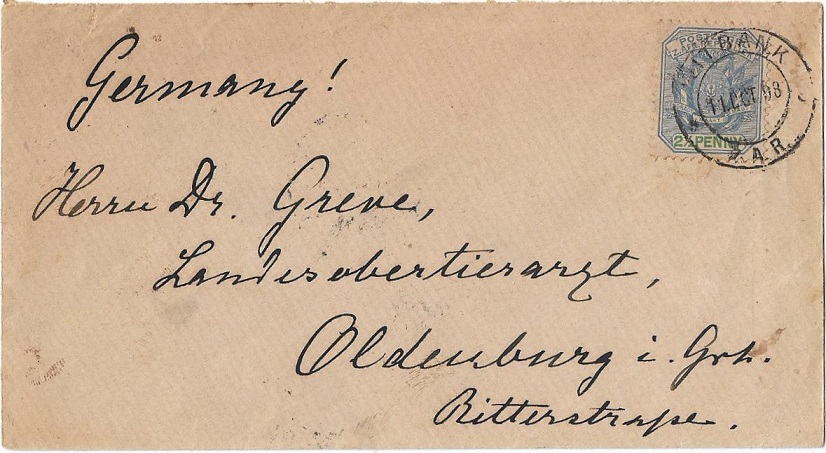 Germany!
Herrn Dr. Greve,
Landesobertierarzt,
Oldenburg i. Grh.
Ritterstraße.
POSTZEGEL
Z. AFR. REPUBLIEK
2½ PENNY
11 OCT 98
Z.A.R.